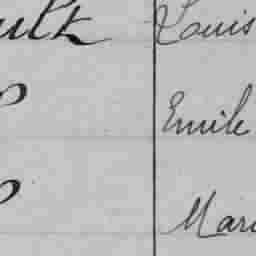 ultz Louis
Emile
Mari